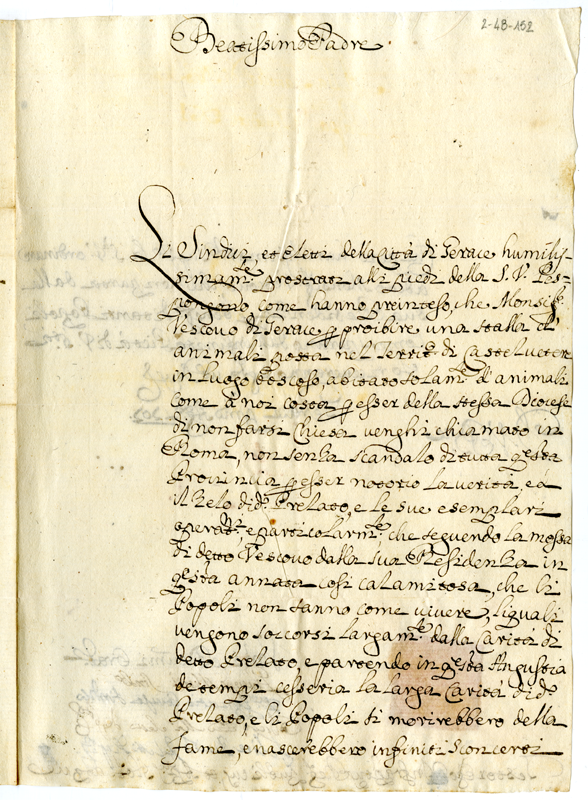 2-48-152
Beatissimo Padre.
Li Sindici, et Eletti della Città di Gerace humilis-
simam.te prostrati alli piedi della S. V. Es-
pongono, come hanno preinteso, che Monsig.r
Vescovo di Gerace p proibire una stalla d'
animali posta nel Territ.o di Castelvetere
in luogo boscoso, abitato solam.te d'animali
come à noi costa p esser della stessa Diocese
di non farsi Chiesa venghi chiamato in
Roma, non senza scandalo di tutta q.sta
Provincia p esser notorio la verità, e à
il Zelo di d.o Prelato, e le sue esemplari
operat.ni, e particolarm.te che seguendo la mossa
di detto Vescovo dalla sua Residenza in
q.sta annata così calamitosa, che li
Popoli non sanno come vivere, li quali
vengono soccorsi largam.te dalla Carità di
detto Prelato, e partendo in q.sta Angustia
de tempi cesseria la larga Carità di d.o
Prelato, e li Popoli si morirebbero della
fame, e nascerebbero infiniti sconcerti